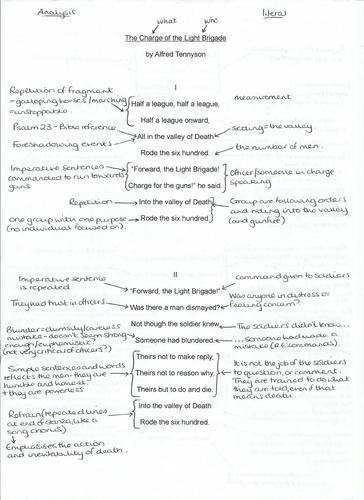 Analysis
literal
what
who
The Charge of the Light Brigade
by Alfred Tennyson
I
Repetition of fragment
= galloping horses/marching
= unstoppable.
Half a league, half a league,
measurement
Half a league onward,
Psalm 23 - Bible reference
All in the valley of Death
setting = the valley.
Foreshadowing events
Rode the six hundred.
the number of men.
Imperative sentences
commanded to run towards
guns
"Forward, the Light Brigade!
Charge for the guns!' he said.
Officer/someone in charge
speaking
Repetition
Into the valley of Death
Group are following orders
and riding into the valley
(and gunfire)
one group with one purpose
(no individual focused on).
Rode the six hundred.
II
Imperative sentence
is repeated
command given to soldiers
"Forward, the Light Brigade!"
They had trust in officers
Was there a man dismayed?
Was anyone in distress or
feeling concern?
Not though the soldier knew
The soldiers didn't know...
Blunder = clumsily/careless
mistake - doesn't seem strong
enough/euphemistic?
(not very critical of officers?)
Someone had blundered.
...someone had made a
mistake (RE: commands).
Simple sentences and words
reflects the men - they are
humble and honest
+ they are powerless
Theirs not to make reply,
Theirs not to reason why,
Theirs but to do and die.
It is not the job of the soldiers
to question, or comment.
They are trained to do what
they are told, even if that
means death.
Refrain (repeated lines
at end of stanza, like a
song chorus)
Into the valley of Death
Rode the six hundred.
Emphasises the action
and inevitability of death.